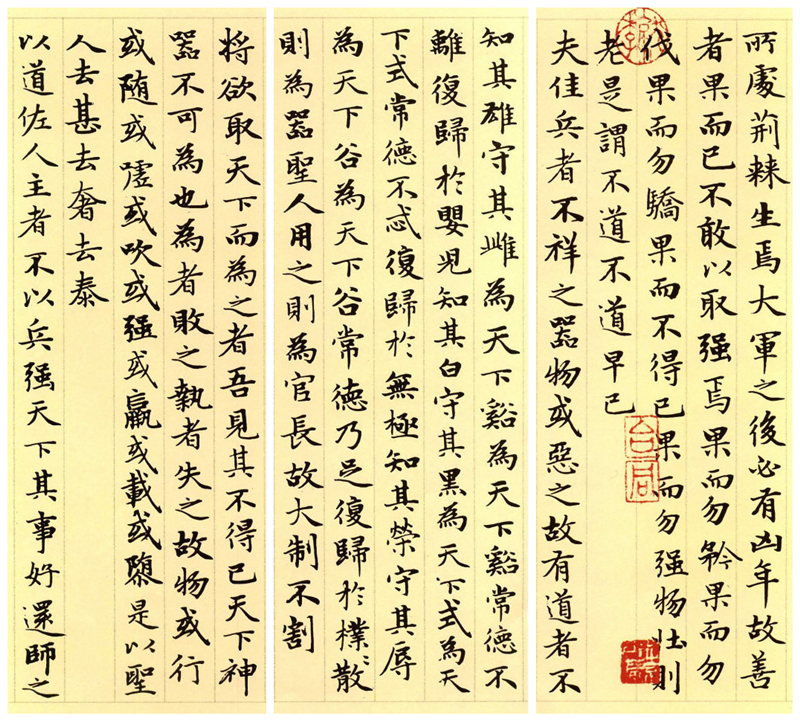 所處荊棘生焉大軍之後必有凶年故善
者果而已不敢以取强焉果而勿矜果而勿
伐果而勿驕果而不得已果而勿强物壯則
老是謂不道不道早已
夫佳兵者不祥之器物或惡之故有道者不
知其雄守其雌為天下谿為天下谿常德不
離復歸於嬰児知其白守其黑為天下式為天
下式常德不忒復歸於無極知其榮守其辱
為天下谷為天下谷常德乃足復歸於樸〻散
則為器聖人用之則為官長故大制不割
將欲取天下而為之者吾見其不得已天下神
器不可為也為者敗之執者失之故物或行
或随或噓或吹或强或羸或載或隳是以聖
人去甚去奢去泰
以道佐人主者不以兵强天下其事好還師之